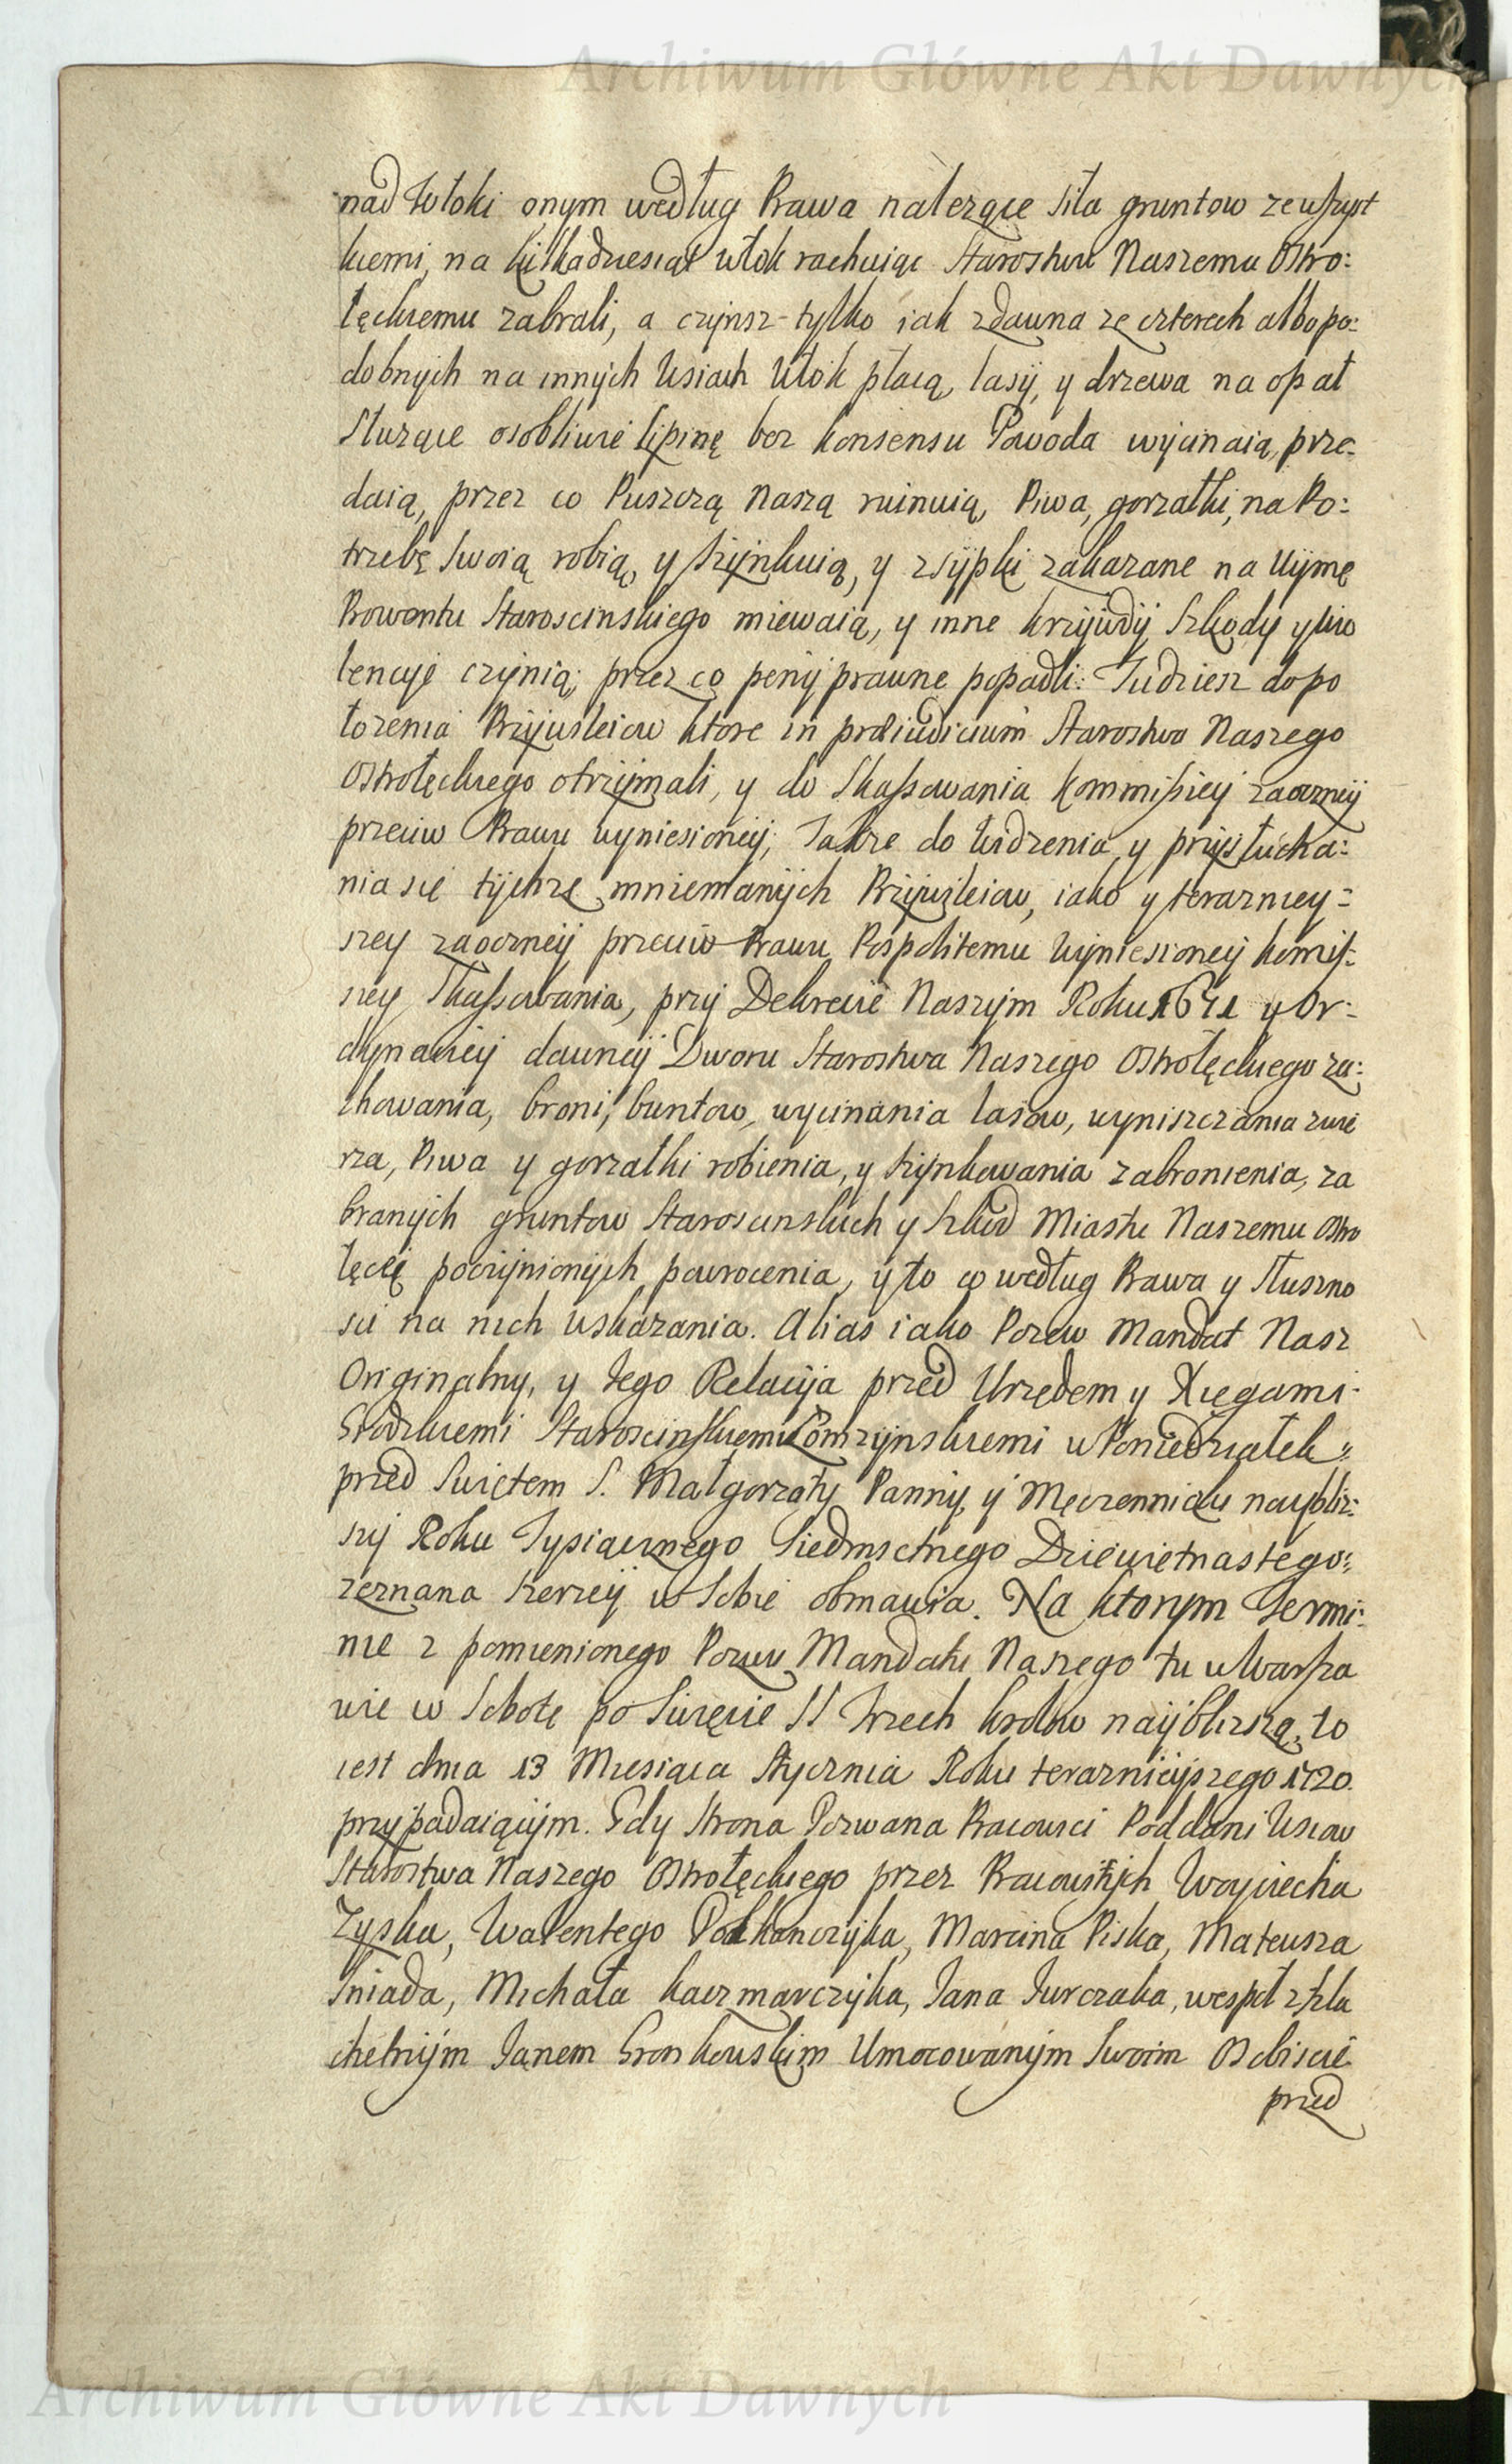 Archiwum Główne Akt Dawnych
nad Włoki onym według Prawa nalezące siła gruntow zewszyst
kiemi, na kilkadziesiąt włok rachuiąc Starostwu Naszemu Ostro:
łęckiemu zabrali, a czynsz tylko iak zdawna ze czterech albo po:
dobnych na innych Wsiach Włok płacą, lasy, y drzewa na opał
Służące osobliwie lipinę bez konsensu Powoda wycinaią, prze:
daią, przez co Puszczą Naszą ruinuią, Piwa, gorzałki, na Po:
trzebę Swoią robią, y szynkuią, y zsypki zakazane na Uymę
Prowentu Staroscinskiego miewaią, y inne krzywdy Szkody y wio
lencyę czynią; przez co peny prawne popadli. Tudziesz do po
łozenia Przywileiow ktore in praeiudicium Starostwa Naszego
Ostrołęckiego otrzymali, y do Skassowania kommissiey zaoczney
przeciw Prawu wyniesioney, Takze do widzenia, y przysłucha:
nia się tychze mniemanych Przywileiow, iako y terazniey:
szey zaoczney przeciw Prawu Pospolitemu Wyniesioney komis:
siey Skassowania, przy Dekrecie Naszym Roku 1641 y Or:
dynaciey dawney Dworu Starostwa Naszego Ostrołęckiego za:
chowania, broni, buntow, wycinania lasow, wyniszczania zwie
rza, Piwa y gorzałki robienia, y szynkowania zabronienia, za
branych gruntow Staroscinskich y szkod Miastu Naszemu Ostro
łęcę poczynionych powrocenia, y to co według Prawa y Słuszno
sci na nich wskazania. Alias iako Pozew Mandat Nasz
Originalny, y Jego Relacyja przed Urzędem y Xięgami
Grodzkiemi Staroscinskiemi Łomzynskiemi w Poniedziałek
przed Swiętem S. Małgorzaty Panny, y Męczenniczki naybliz:
szy Roku Tysiącznego Siedmsetnego Dziewiętnastego
zeznana szerzey w Sobie obmawia. Na ktorym Termi:
nie z pomienionego Pozwu Mandatu Naszego tu w Warsza
wie w Sobotę po Swięcie SS Trzech krolow nayblizszą, to
iest dnia 13 Miesiąca Stycznia Roku terazniejszego 1720.
przypadaiącym. Gdy Strona Pozwana Pracowici Poddani Wsiow
Starostwa Naszego Ostrołęckiego przez Pracowitych Woyciecha
Zyska, Walentego Polkonczyka, Marcina Piska, Mateusza
Sniada, Michała kaczmarczyka, Jana Jurczaka, wespoł z szla
chetnym Janem Gronkowskim Umocowanym Swoim Osobiscie
przed
Archiwum Główne Akt Dawnych